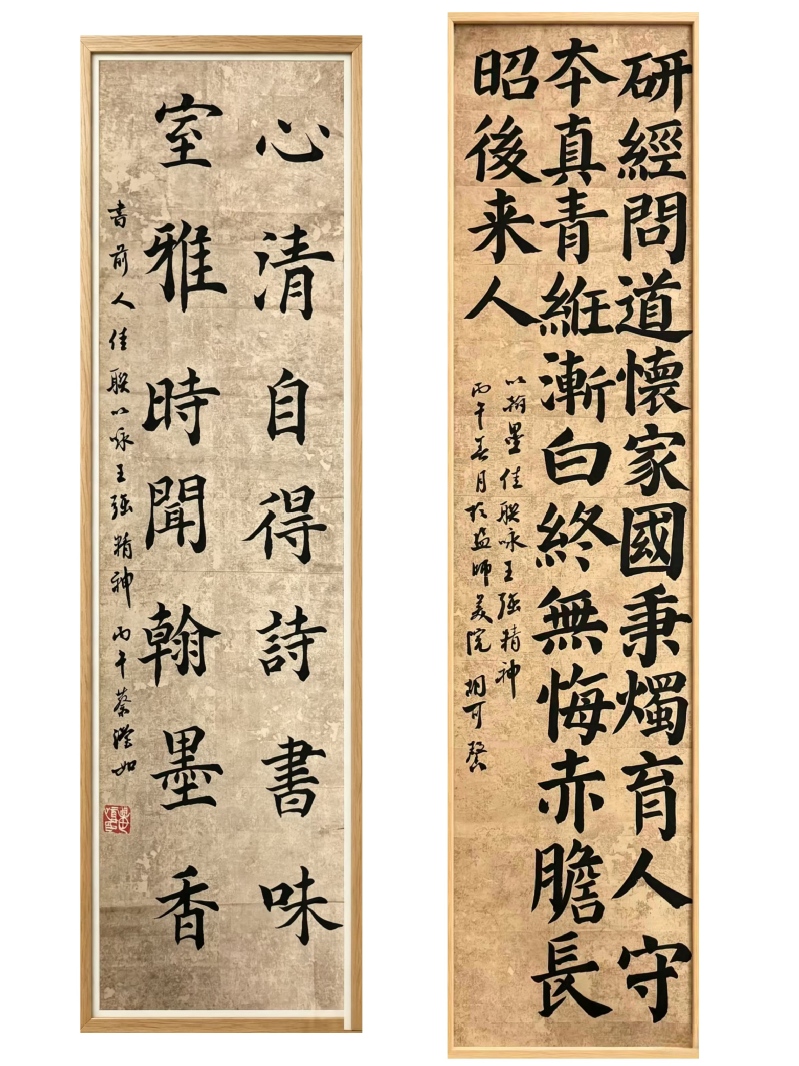 心清自得詩書味
室雅時聞翰墨香
書前人佳联以咏王强精神 丙午蔡滢如
研經問道懷家國秉燭育人守
本真青漸白終無悔赤膽長
昭後来人
以翰墨佳联咏王强精神
丙午春月於盐师美院 胡可馨